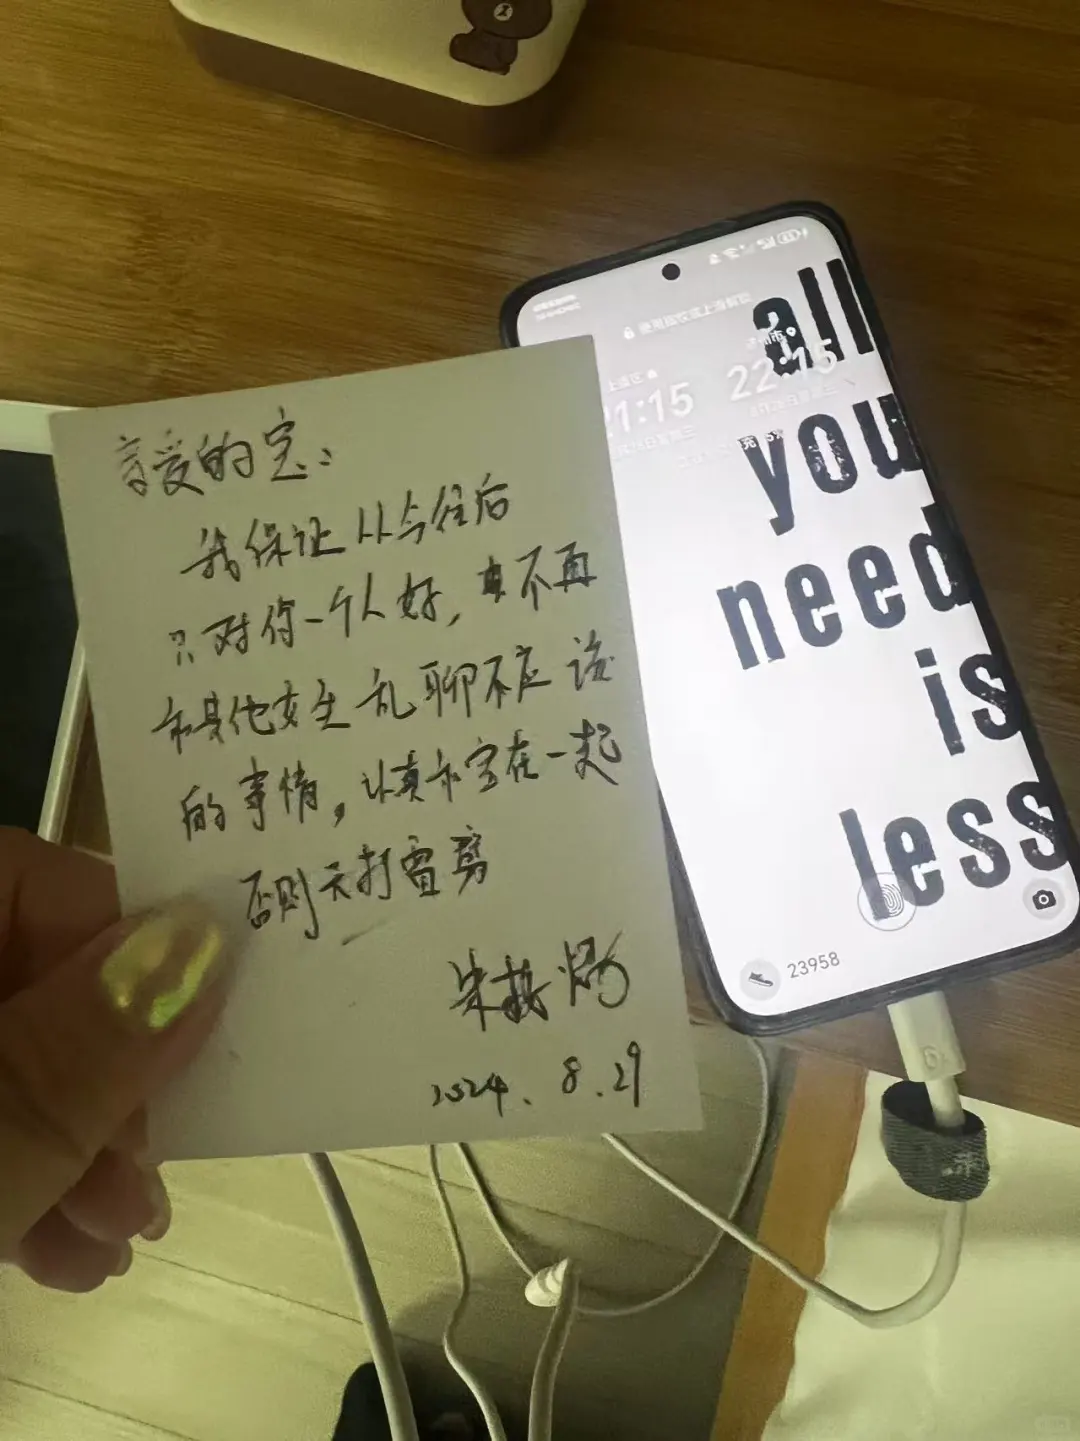 亲爱的宝:
我保证从今往后
只对你一个人好,不再
和其他女生乱聊不应该
的事情,认真和宝在一起
否则天打雷劈
2024.8.29
22:15
all
you
need
is
less
23958